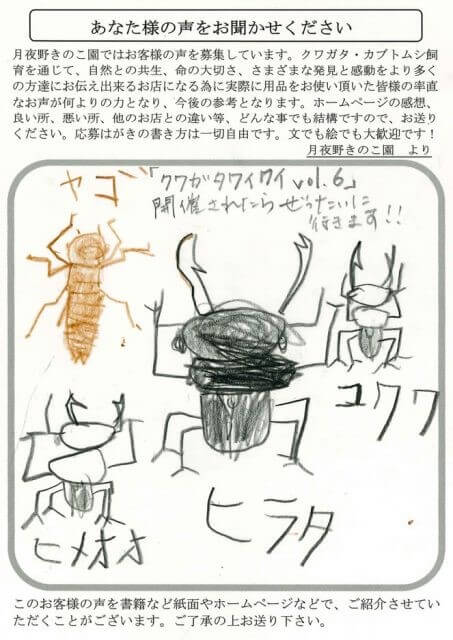 あなた様の声をお聞かせください
月夜野きのこ園ではお客様の声を募集しています。クワガタ・カブトムシ飼
育を通じて、自然との共生、命の大切さ、さまざまな発見と感動をより多く
の方達にお伝え出来るお店になる為に実際に用品をお使い頂いた皆様の率直
なお声が何よりの力となり、今後の参考となります。ホームページの感想、
良い所、悪い所、他のお店との違い等、どんな事でも結構ですので、お送り
ください。応募はがきの書き方は一切自由です。文でも絵でも大歓迎です！
月夜野きのこ園　より
ヤゴ
「クワガタワイワイvol.6」
開催されたらぜったいに
行きます!!
コクワ
ヒラタ
ヒメオオ
このお客様の声を書籍など紙面やホームページなどで、ご紹介させてい
ただくことがございます。ご了承の上お送り下さい。